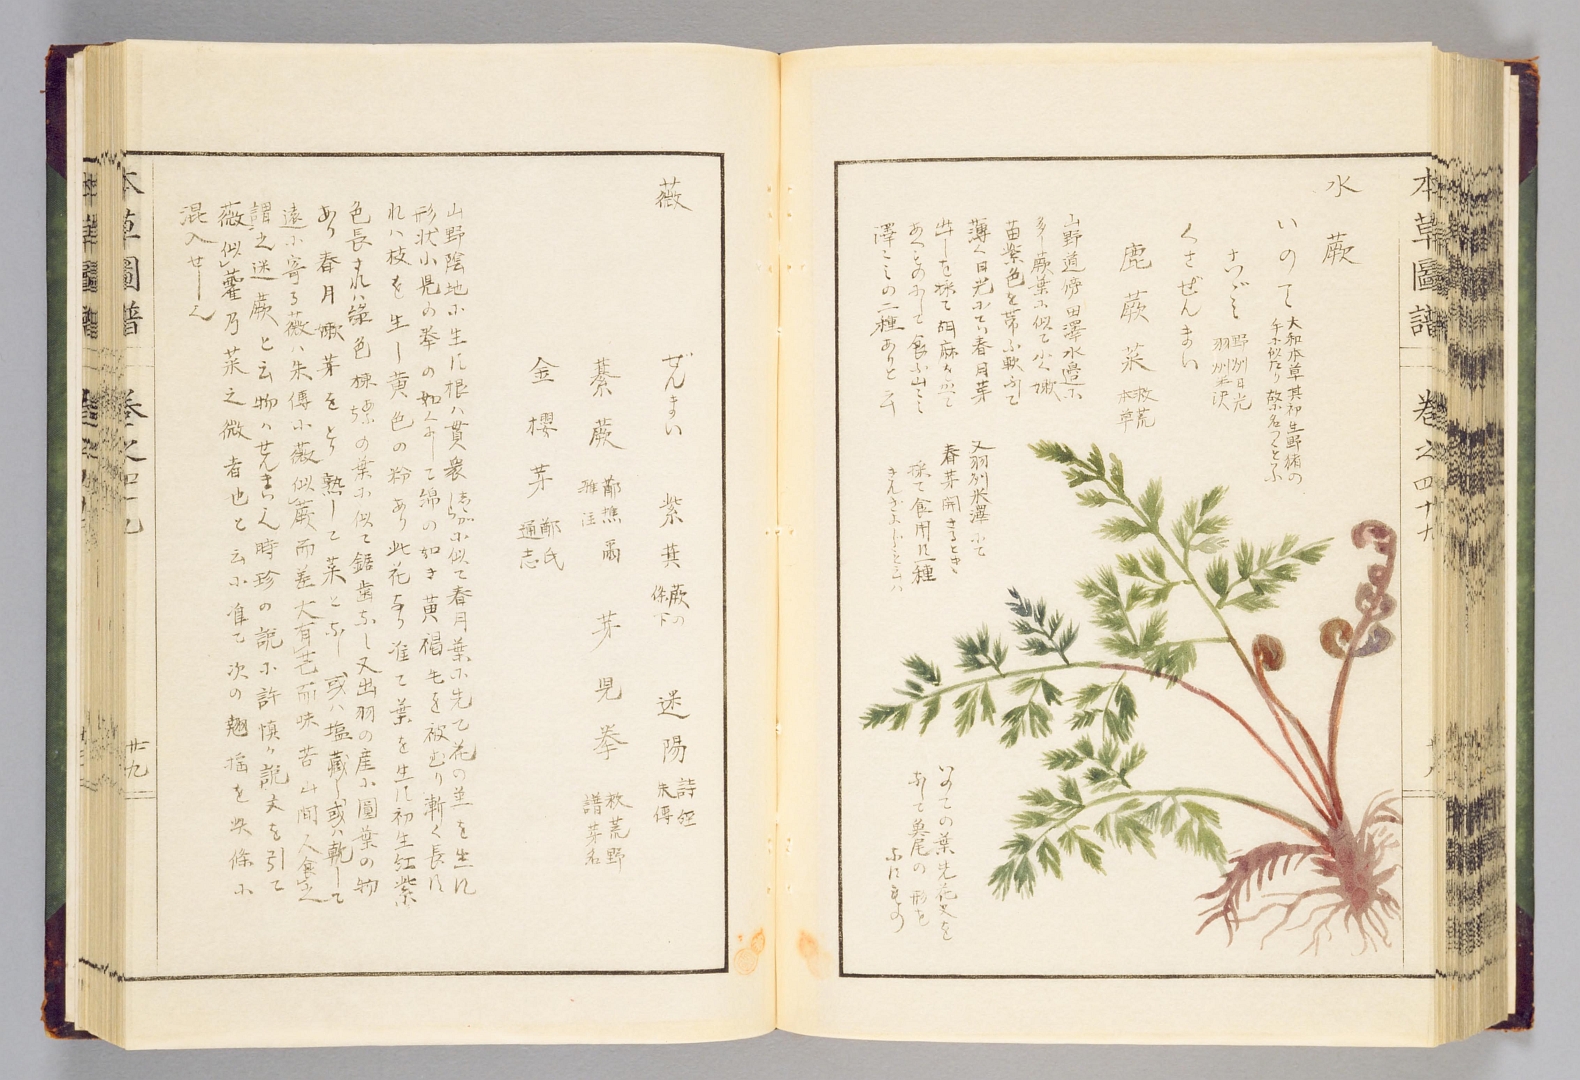 本草圖譜 巻之四十九
水蕨
いのて 大和本草其初生野猪の
手に似たり故名つくと云ふ
さつごミ 野州日光
羽州米沢
くさぜんまい
鹿蕨菜 救荒
本草
山野道傍田澤水邉に
多し蕨葉に似て小く嫩
苗紫色を帯ふ軟にして
薄く日光にてハ春月芽
出しを採て胡麻に
あへものにして食ふ山こミ
澤こミの二種ありと云
又羽州米澤にて
春芽開きるとき
採て食用に種
いのての葉先花火を
なして鳳尾の形を
なにもの
薇
ぜんまい 紫萁 蕨の
條下 迷陽 詩経
朱傳
綦蕨 鄭樵爾
雅注 芽児拳 救荒野
譜芽名
金櫻芽 鄭氏
通志
山野陰地に生す根ハ貫衆に似て春月葉に先て花の莖を生す
形状小児の拳の如くにして綿の如き黄褐毛を被むり漸く長す
れハ枝を生し黄色の粉あり此花なり准て葉を生す初生紅紫
色長すれハ緑色楝の葉に似て鋸歯なし又出羽の産に圓葉の物
あり春月嫩芽をとり熟して菜となし或ハ塩藏し或ハ乾して
遠に寄る薇ハ朱傳に薇似蕨而差大有芒而味苦山間人食之
謂之迷蕨と云物ハぜんまい也時珍の説に許慎か説文を引て
薇似藿乃菜之微者也と云に准て次の翹揺を此條に
混入せし也
本草圖譜 巻之四十九 廿九